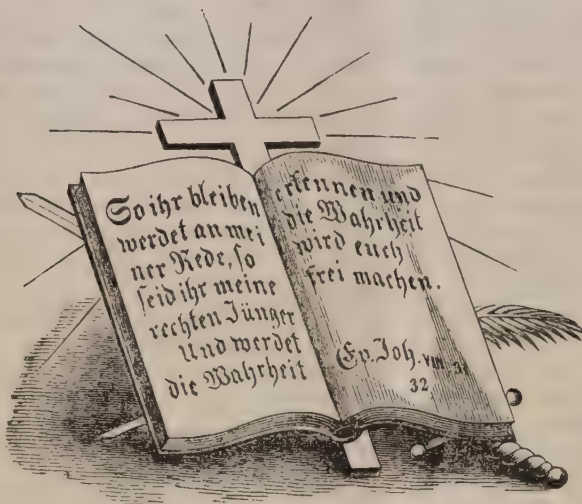 So ihr bleiben
werdet an mei
ner Rede, so
seid ihr meine
rechten Jünger
Und werdet
die Wahrheit
erkennen und
die Wahrheit
wird euch
frei machen.
Ev. Joh. VIII 31
32.